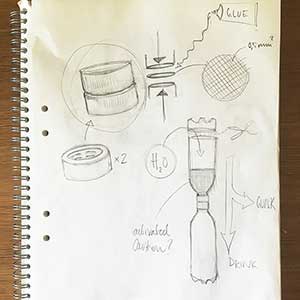 GLUE!
0,5mm²
x2
H₂O
activated
Carbon?
QUICK
DRINK